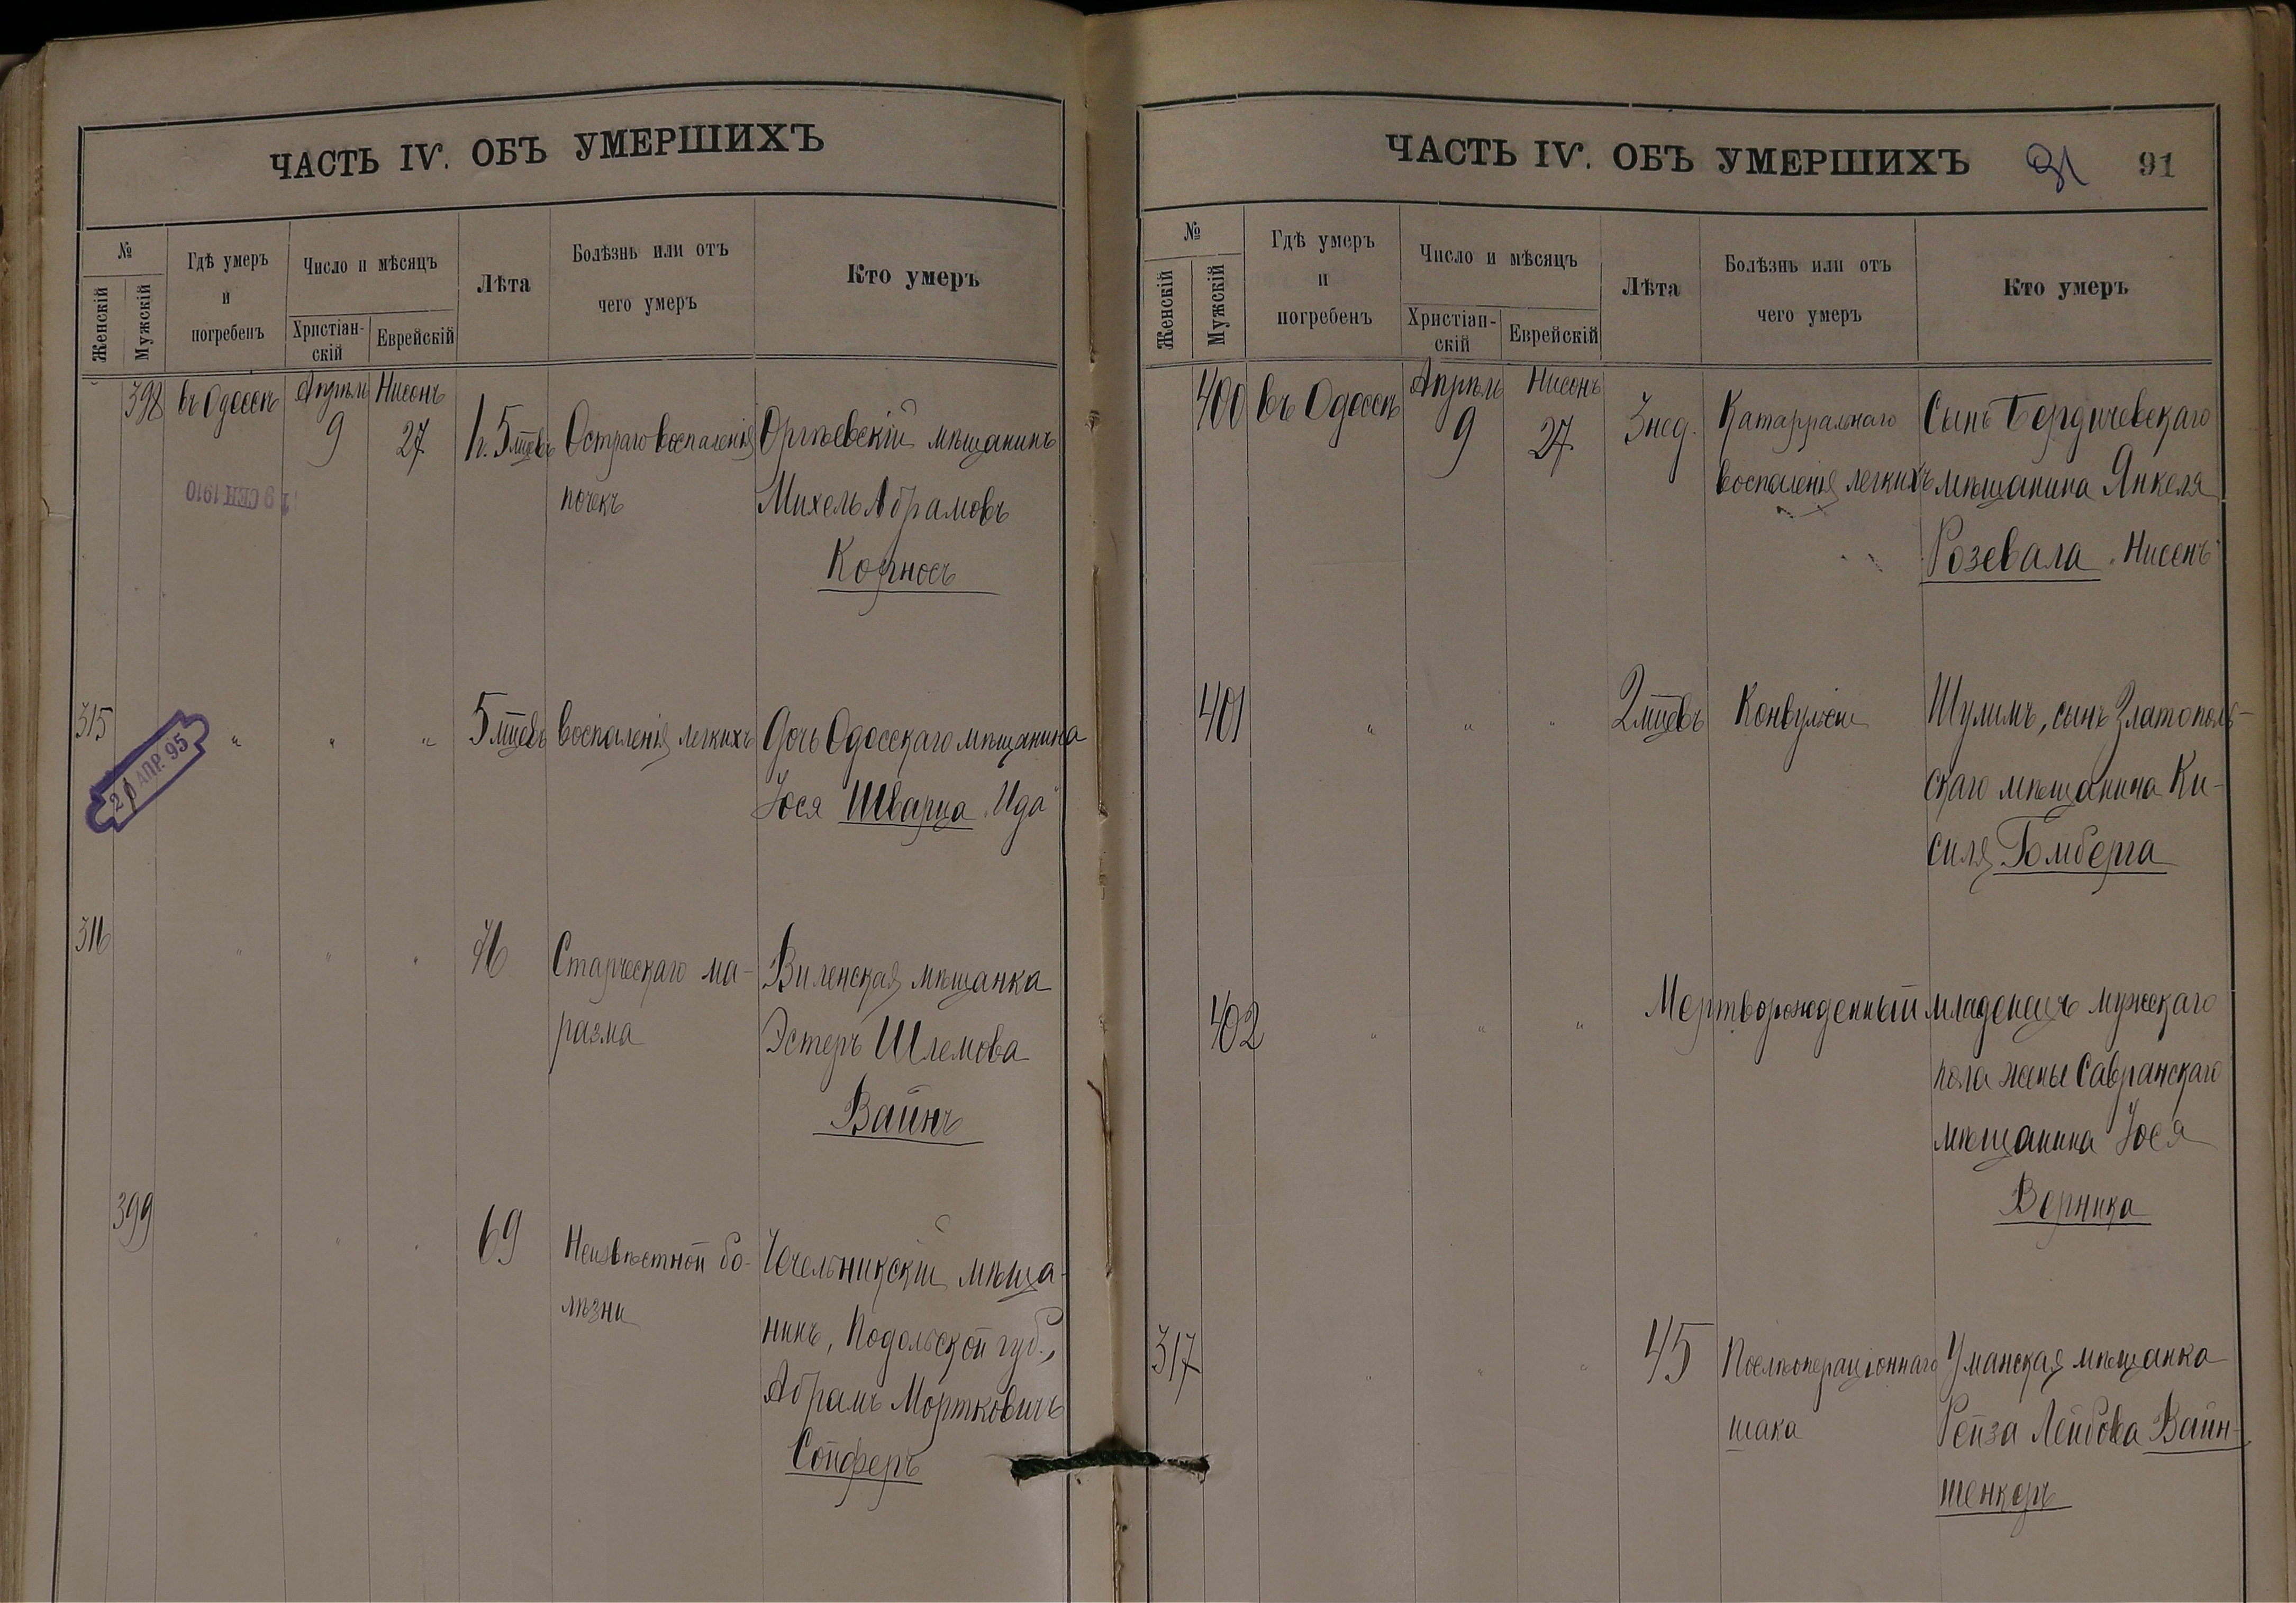 ЧАСТЬ IV. ОБЪ УМЕРШИХЪ
№
Женскій
Мужскій
Гдѣ умеръ
и
погребенъ
Число и мѣсяцъ
Христіан-
скій
Еврейскій
Лѣта
Болѣзнь или отъ
чего умеръ
Кто умеръ
398 въ Одессѣ Апрѣль 9 Нисонъ 27 5 мцевъ Остраго воспаленія Оргѣевскій мѣщанинъ
почекъ Михель Абрамовъ
Корносъ
19 СЕН 1910
315 " " " 5 мцевъ воспаленія легкихъ Дочь Одесскаго мѣщанина
Іося Шварца "Ида"
АПР. 95
316 " " " 76 Старческаго ма- Виленская мѣщанка
разма Эстеръ Шлемова
Вайнъ
399 " " " 69 Неизвѣстной бо- Чечельникскій мѣща-
лѣзни нинъ, Подольской губ.,
Абрамъ Мортковичъ
Сойферъ
ЧАСТЬ IV. ОБЪ УМЕРШИХЪ 91 91
№
Женскій
Мужскій
Гдѣ умеръ
и
погребенъ
Число и мѣсяцъ
Христіан-
скій
Еврейскій
Лѣта
Болѣзнь или отъ
чего умеръ
Кто умеръ
400 въ Одессѣ Апрѣль 9 Нисонъ 27 3 нед. Катарральнаго Сынъ Бердичевскаго
воспаленія легкихъ мѣщанина Янкеля
Розевала "Нисенъ"
401 " " " 2 мцевъ Конвульсіи Шулимъ, сынъ Златополь-
скаго мѣщанина Ки-
силя Гомберга
402 " " " Мертворожденный младенецъ мужскаго
пола жены Савранскаго
мѣщанина Іося
Верника
317 " " " 45 Послѣопераціоннаго Уманская мѣщанка
шака Рейза Лейбова Вайн-
шенкеръ